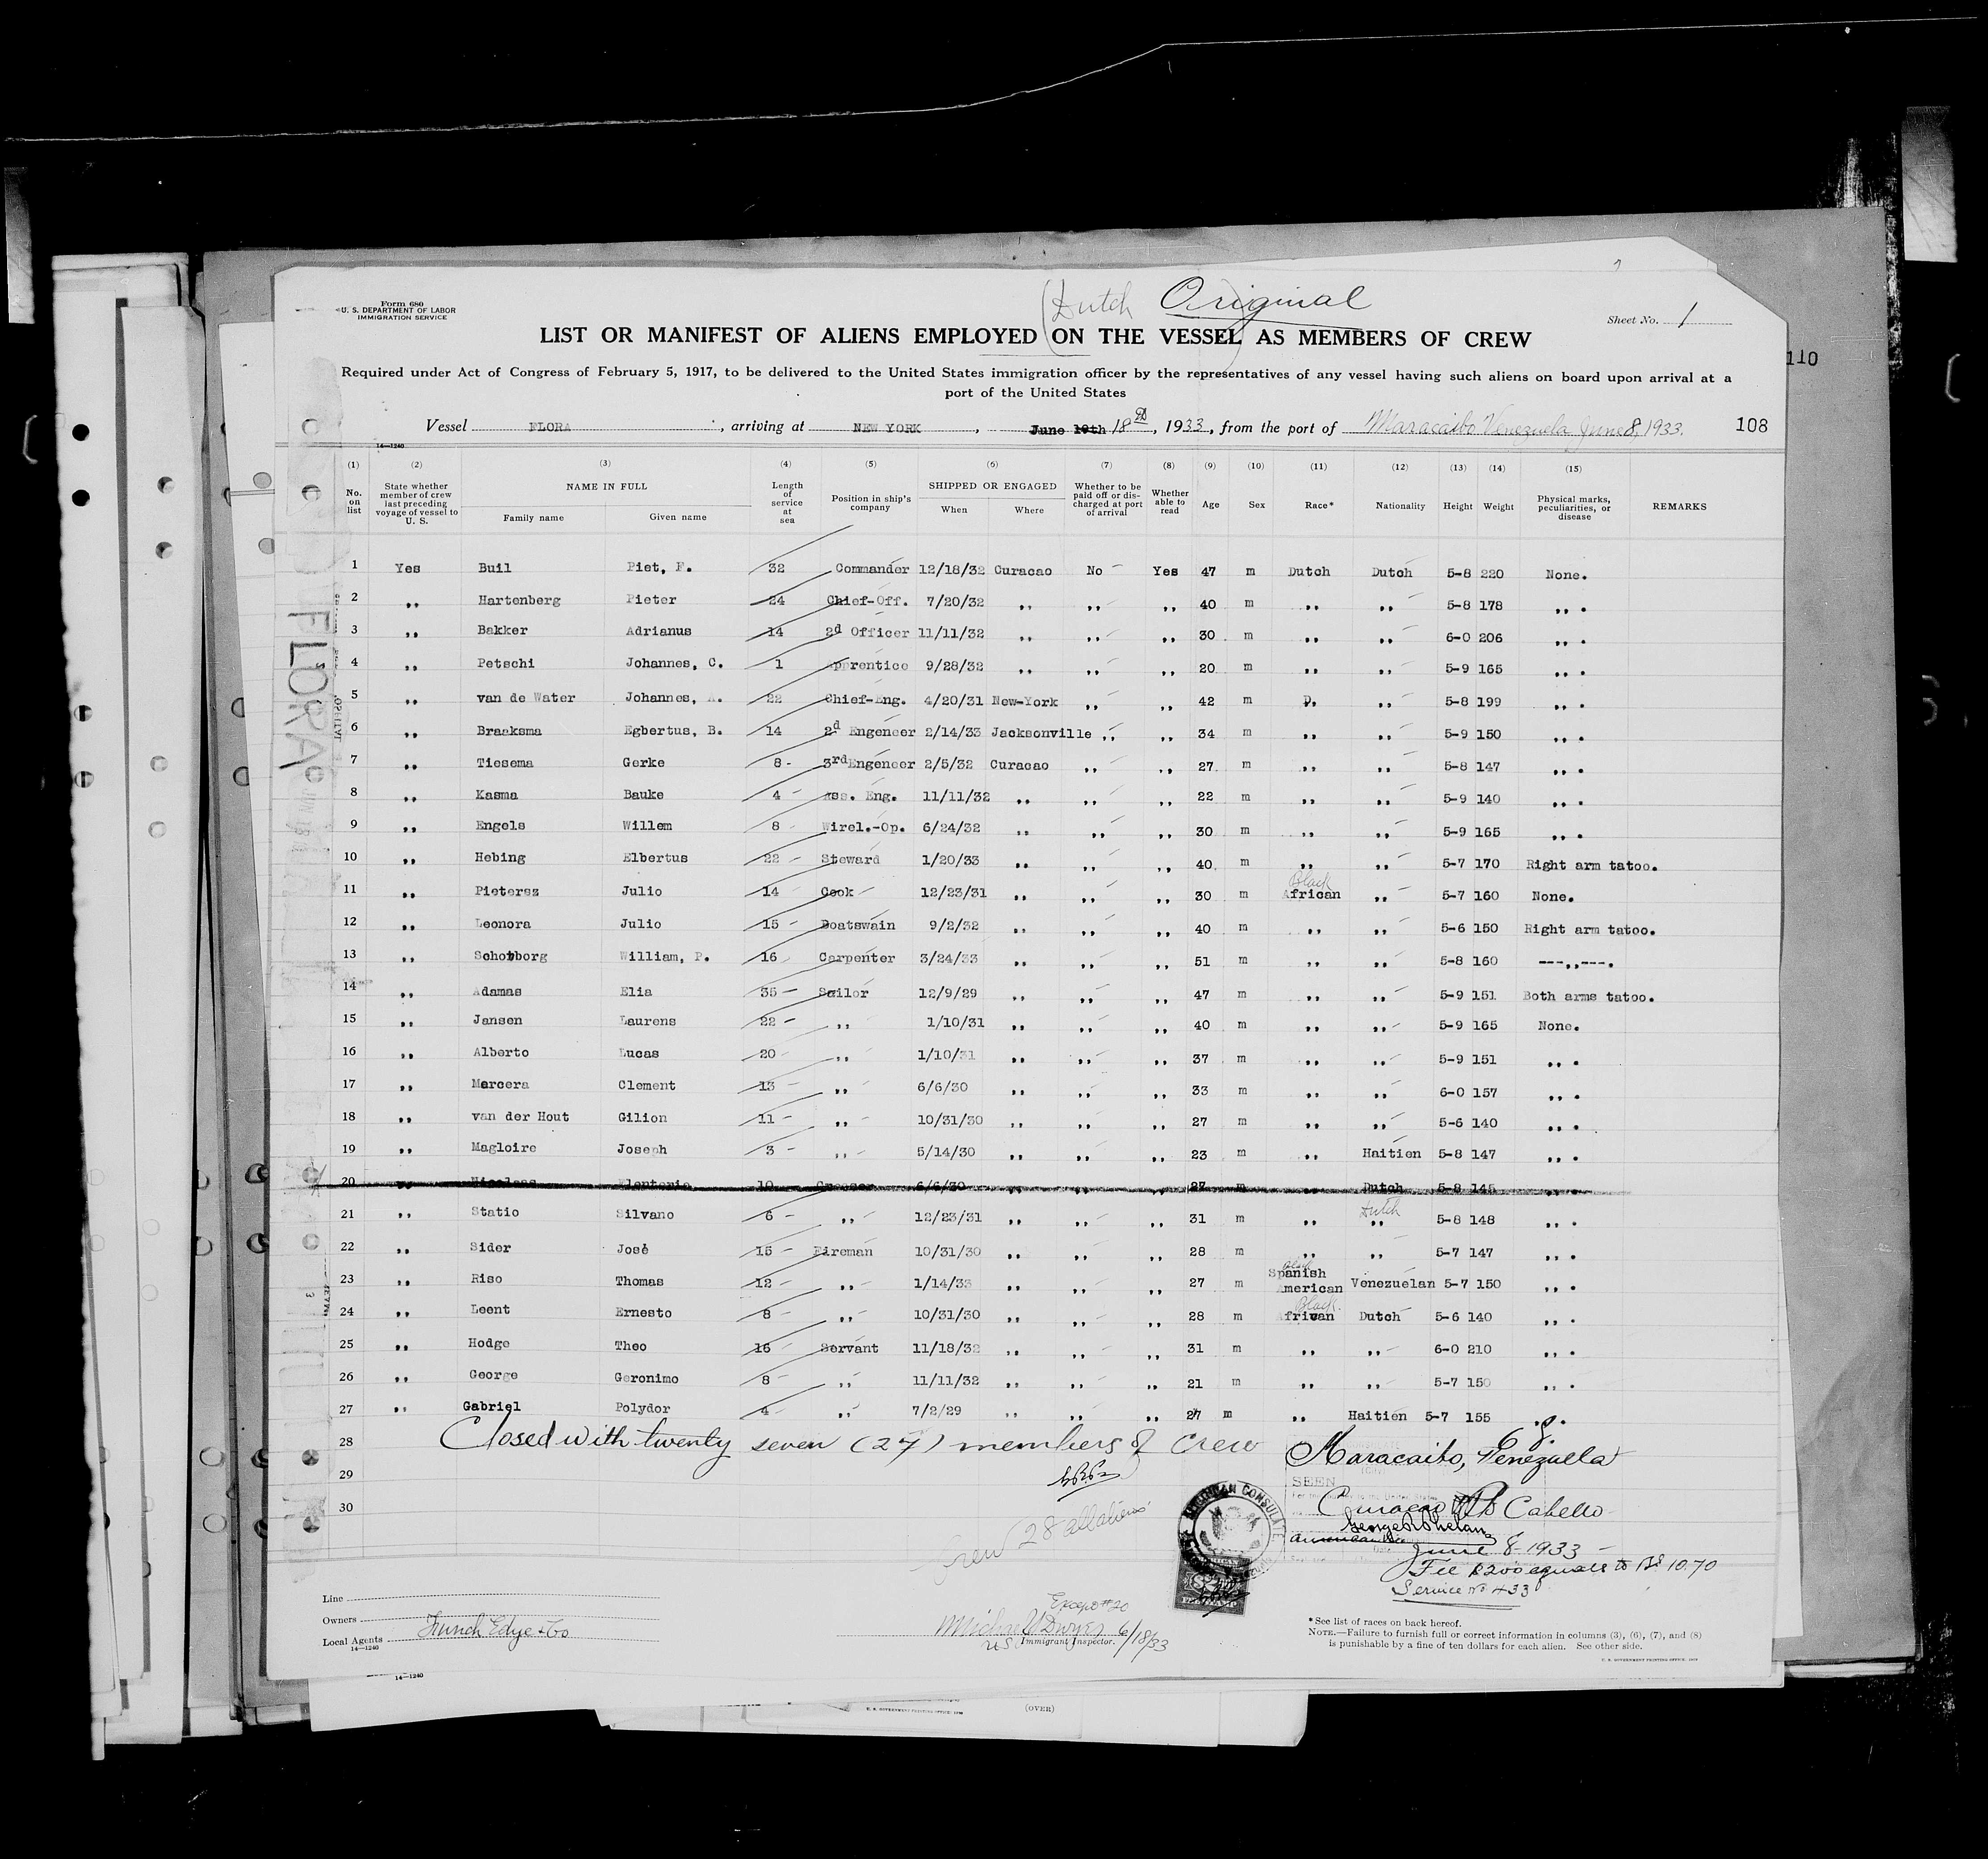 Form 680
U. S. DEPARTMENT OF LABOR
IMMIGRATION SERVICE
(Dutch) Original
Sheet No. 1
LIST OR MANIFEST OF ALIENS EMPLOYED ON THE VESSEL AS MEMBERS OF CREW
Required under Act of Congress of February 5, 1917, to be delivered to the United States immigration officer by the representatives of any vessel having such aliens on board upon arrival at a
port of the United States
110
Vessel FLORA, arriving at NEW YORK, June 18th, 1933, from the port of Maracaibo Venezuela June 8, 1933.
108
14-1240
(1) (2) (3) (4) (5) (6) (7) (8) (9) (10) (11) (12) (13) (14) (15)
No. on list State whether member of crew last preceding voyage of vessel to U. S. NAME IN FULL Family name Given name Length of service at sea Position in ship's company SHIPPED OR ENGAGED When Where Whether to be paid off or discharged at port of arrival Whether able to read Age Sex Race* Nationality Height Weight Physical marks, peculiarities, or disease REMARKS
1 Yes Buil Piet, F. 32 Commander 12/18/32 Curacao No Yes 47 m Dutch Dutch 5-8 220 None.
2 ,, Hartenberg Pieter 24 Chief-Off. 7/20/32 ,, ,, ,, 40 m ,, ,, 5-8 178 ,, .
3 ,, Bakker Adrianus 14 2d Officer 11/11/32 ,, ,, ,, 30 m ,, ,, 6-0 206 ,, .
4 ,, Petschi Johannes, C. 1 Apprentice 9/28/32 ,, ,, ,, 20 m ,, ,, 5-9 165 ,, .
5 ,, van de Water Johannes, A. 22 Chief-Eng. 4/20/31 New-York ,, ,, 42 m ,, ,, 5-8 199 ,, .
6 ,, Braaksma Egbertus, B. 14 2d Engeneer 2/14/33 Jacksonville ,, ,, 34 m ,, ,, 5-9 150 ,, .
7 ,, Tiesema Gerke 8 3rd Engeneer 2/5/32 Curacao ,, ,, 27 m ,, ,, 5-8 147 ,, .
8 ,, Kasma Bauke 4 ass. Eng. 11/11/32 ,, ,, ,, 22 m ,, ,, 5-9 140 ,, .
9 ,, Engels Willem 8 Wirel.-Op. 6/24/32 ,, ,, ,, 30 m ,, ,, 5-9 165 ,, .
10 ,, Hebing Elbertus 22 Steward 1/20/33 ,, ,, ,, 40 m ,, ,, 5-7 170 Right arm tatoo.
11 ,, Pietersz Julio 14 Cook 12/23/31 ,, ,, ,, 30 m Black African ,, 5-7 160 None.
12 ,, Leonora Julio 15 Boatswain 9/2/32 ,, ,, ,, 40 m ,, ,, 5-6 150 Right arm tatoo.
13 ,, Schotborg William, P. 16 Carpenter 3/24/33 ,, ,, ,, 51 m ,, ,, 5-8 160 ---,,---.
14 ,, Adamas Elia 35 Sailor 12/9/29 ,, ,, ,, 47 m ,, ,, 5-9 151 Both arms tatoo.
15 ,, Jansen Laurens 22 ,, 1/10/31 ,, ,, ,, 40 m ,, ,, 5-9 165 None.
16 ,, Alberto Lucas 20 ,, 1/10/31 ,, ,, ,, 37 m ,, ,, 5-9 151 ,, .
17 ,, Marcera Clement 13 ,, 6/6/30 ,, ,, ,, 33 m ,, ,, 6-0 157 ,, .
18 ,, van der Hout Gilion 11 ,, 10/31/30 ,, ,, ,, 27 m ,, ,, 5-6 140 ,, .
19 ,, Magloire Joseph 3 ,, 5/14/30 ,, ,, ,, 23 m ,, Haitien 5-8 147 ,, .
20 ,, 10 Greaser 6/6/30 ,, ,, ,, 27 m ,, Dutch 5-8 145 ,, .
21 ,, Statio Silvano 6 ,, 12/23/31 ,, ,, ,, 31 m ,, Dutch ,, 5-8 148 ,, .
22 ,, Sider José 15 Fireman 10/31/30 ,, ,, ,, 28 m ,, ,, 5-7 147 ,, .
23 ,, Riso Thomas 12 ,, 1/14/33 ,, ,, ,, 27 m Black Spanish American Venezuelan 5-7 150 ,, .
24 ,, Leent Ernesto 8 ,, 10/31/30 ,, ,, ,, 28 m Black Afrivan Dutch 5-6 140 ,, .
25 ,, Hodge Theo 16 Servant 11/18/32 ,, ,, ,, 31 m ,, ,, 6-0 210 ,, .
26 ,, George Geronimo 8 ,, 11/11/32 ,, ,, ,, 21 m ,, ,, 5-7 150 ,, .
27 ,, Gabriel Polydor 4 ,, 7/2/29 ,, ,, ,, 27 m ,, Haitien 5-7 155 ,, .
28 Closed with twenty seven (27) members of crew Maracaibo, Venezuela
29 SEEN
30 Curacao Cabello
George R Phelan
AMERICAN CONSULATE
June 8-1933
Fee $2.00 equals to Bs 10.70
Service No 433
Crew 28 all aliens
Except #20
FLORA
Line
Owners
Local Agents Funch Edye & Co
14-1240
Michael Dwyer 6/18/33
US Immigrant Inspector.
*See list of races on back hereof.
NOTE.—Failure to furnish full or correct information in columns (3), (6), (7), and (8)
is punishable by a fine of ten dollars for each alien. See other side.
U. S. GOVERNMENT PRINTING OFFICE
14-1240
(OVER)